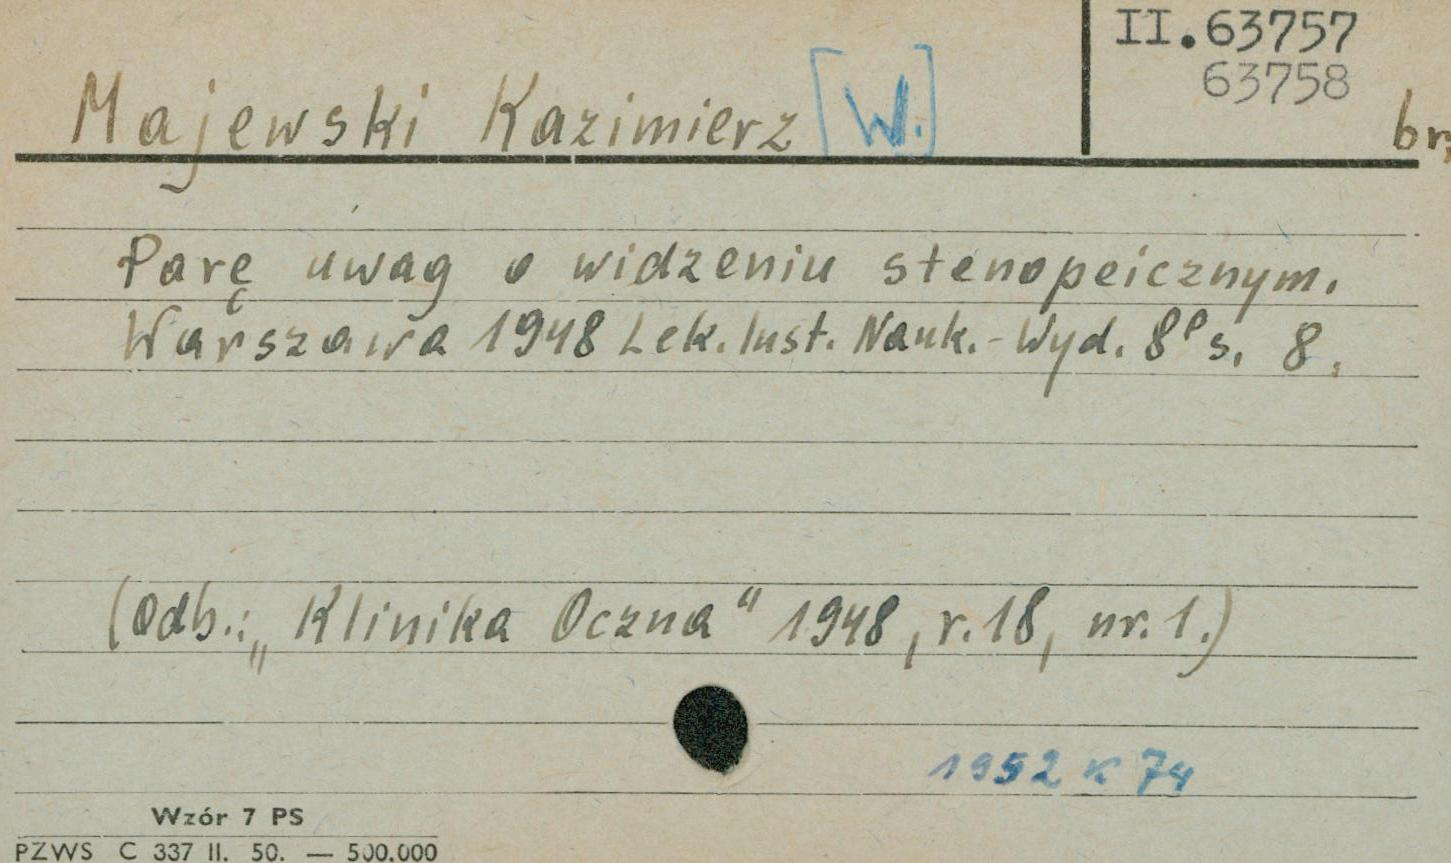 II.63757
63758
br,
Majewski Kazimierz [W.]
Parę uwag o widzeniu stenopeicznym.
Warszawa 1948 Lek. Inst. Nauk.-Wyd. 8° s. 8.
(Odb.: „Klinika Oczna" 1948, r.18, nr.1.)
1952 K 74
Wzór 7 PS
PZWS C 337 II. 50. — 500.000